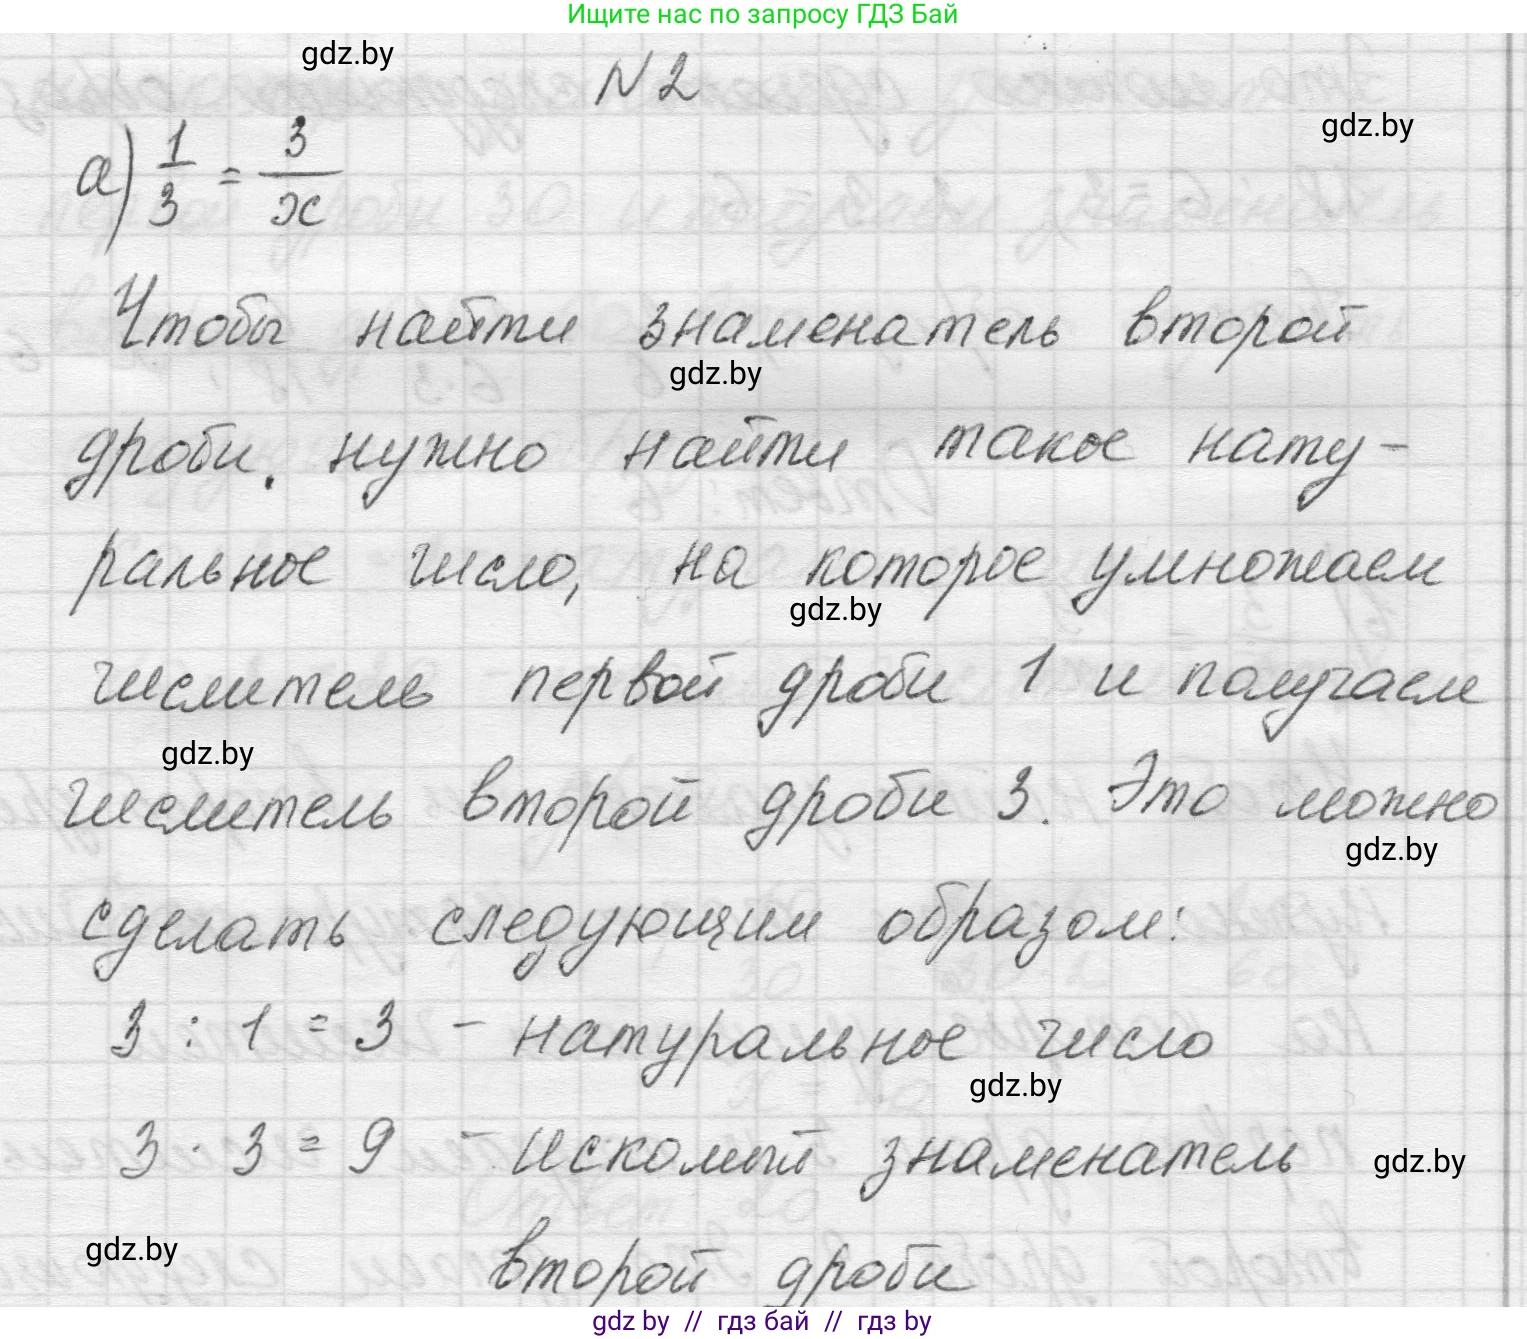 Ищите нас по запросу ГДЗ Бай
gdz.by
N 2
gdz.by
а) 1/3 = 3/x
Чтобы найти знаменатель второй
gdz.by
дроби, нужно найти такое нату-
ральное число, на которое умножаем
gdz.by
числитель первой дроби 1 и получаем
gdz.by
числитель второй дроби 3. Это можно
gdz.by
сделать следующим образом:
3 : 1 = 3 - натуральное число
gdz.by
3 · 3 = 9 - искомый знаменатель
gdz.by
gdz.by
второй дроби
gdz by // гдз бай // гдз by